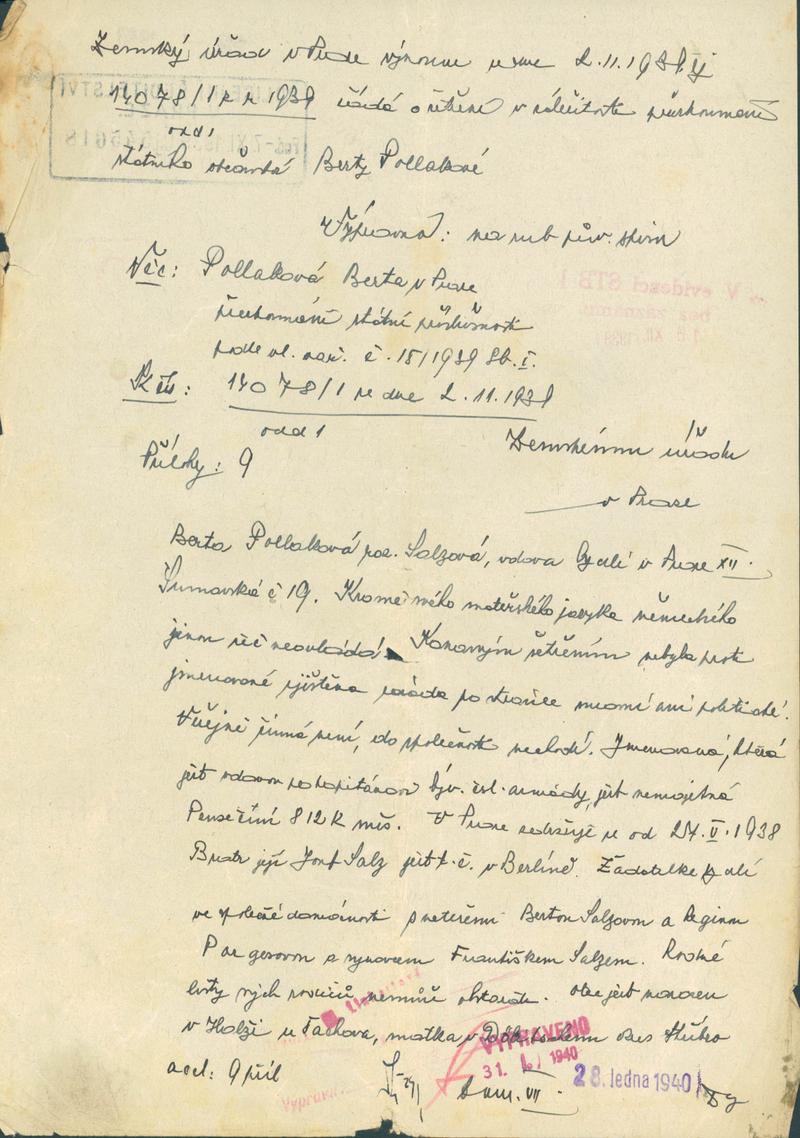 Zemský úřad v Praze výnosem ze dne 2.11.1939 čj
14078/1 z r 1939 žádá o šetření v záležitosti přezkoumání
odd 1
státního občanství Berty Pollakové
Výpravna: na rub pův. spisu
Věc: Pollaková Berta v Praze
přezkoumání státní příslušnosti
podle vl. nař. č. 15/1939 Sb. I.
K čís: 14078/1 ze dne 2.11.1939
odd 1
Přílohy: 9
Zemskému úřadu
v Praze
Berta Pollaková roz. Salzová, vdova bydlí v Praze XII.
Šumavská č 19. Kromě svého mateřského jazyka německého
jinou řeč neovládá. Konaným šetřením nebyla proti
jmenované zjištěna závada po stránce mravní ani politické.
Veřejně činná není, do společnosti nechodí. Jmenovaná, která
jest vdovou po kapitánovi býv. čsl. armády, jest nemajetná
Pense činí 812 K měs. V Praze zdržuje se od 24.V.1938
Bratr její Josef Salz jest t.č. v Berlíně. Žadatelka bydlí
ve společné domácnosti s neteřemi Bertou Salzovou a Reginou
a synovcem Františkem Salzem. Rodné
listy svých rodičů nemůže obstarati. Otec jest narozen
v u Tachova, matka v okres Stříbro
acl: 9 příl
VYPRAVENO
31. I. 1940
28. ledna 1940
V evidenci STB I
bez záznamu